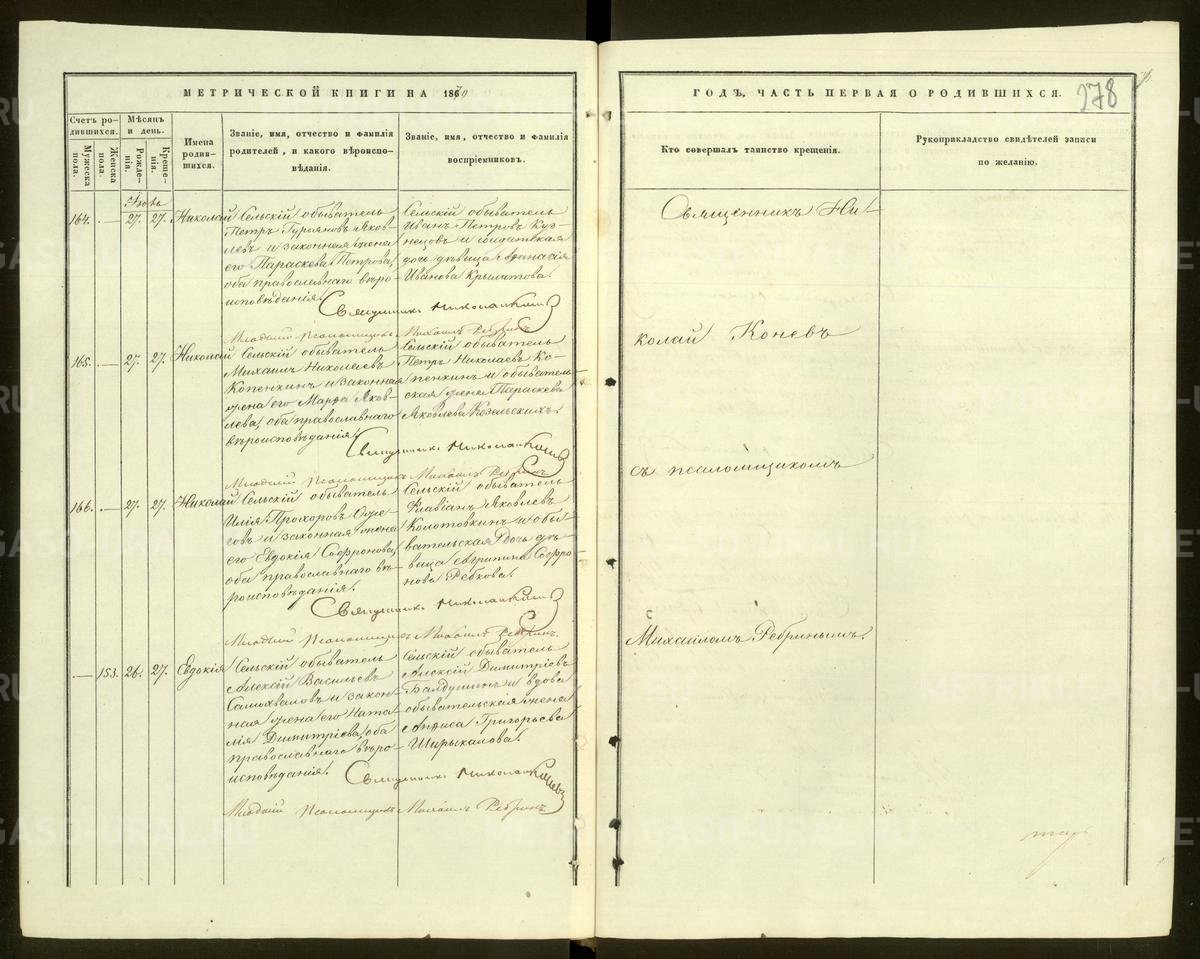 МЕТРИЧЕСКОЙ КНИГИ НА 1870
Счетъ родившихся.
Мужеска пола.
Женска пола.
Мѣсяцъ и день.
Рожденія.
Крещенія.
Имена родившихся.
Званіе, имя, отчество и фамилія родителей, и какого вѣроисповѣданія.
Званіе, имя, отчество и фамилія воспріемниковъ.
164. — 27. 27. Николай
Сельскій обыватель
Петръ Гурьяновъ Яков-
левъ и законная жена
его Параскева Петрова,
оба православнаго вѣро-
исповѣданія.
Сельскій обыватель
Иванъ Петровъ Куз-
нецовъ и солдатская
дочь дѣвица Афанасія
Иванова Крылатова.
Священникъ Николай Коневъ
Младшій Псаломщикъ Михаилъ Ребринъ
165. — 27. 27. Николай
Сельскій обыватель
Михаилъ Николаевъ
Копенкинъ и законная
жена его Марфа Яков-
лева, оба православнаго
вѣроисповѣданія.
Сельскій обыватель
Петръ Николаевъ Ко-
пенкинъ и обыватель-
ская жена Параскева
Яковлева Козельскихъ.
Священникъ Николай Коневъ
Младшій Псаломщикъ Михаилъ Ребринъ
166. — 27. 27. Николай
Сельскій обыватель
Илія Прохоровъ Оже-
говъ и законная жена
его Евдокія Софронова,
оба православнаго вѣ-
роисповѣданія.
Сельскій обыватель
Флавіанъ Яковлевъ
Колотовкинъ и обы-
вательская дочь дѣ-
вица Агрипина Софро-
нова Ребкова.
Священникъ Николай Коневъ
Младшій Псаломщикъ Михаилъ Ребринъ.
— 153. 26. 27. Евдокія
Сельскій обыватель
Алексій Васильевъ
Самохваловъ и закон-
ная жена его Ната-
лія Димитріева, оба
православнаго вѣро-
исповѣданія.
Сельскій обыватель
Алексій Димитріевъ
Балдушинъ и вдова
обывательская жена
Анфиса Григорьева
Ширыкалова.
Священникъ Николай Коневъ
Младшій Псаломщикъ Михаилъ Ребринъ
ГОДЪ, ЧАСТЬ ПЕРВАЯ О РОДИВШИХСЯ.
278
Кто совершалъ таинство крещенія.
Рукоприкладство свидѣтелей записи по желанію.
Священникъ Ни-
колай Коневъ
съ псаломщикомъ
Михаиломъ Ребринымъ.
METRIKI.GASO-URAL.RU